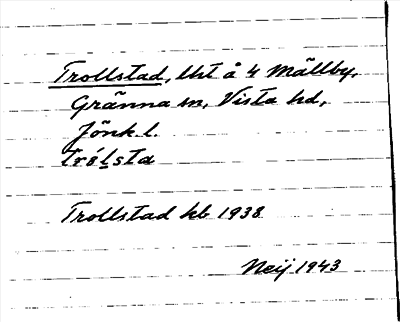 Trollstad, lht å 4 Mällby,
Gränna sn, Vista hd,
Jönk. l.
tró̀lsta
Trollstad kb 1938
Neij 1943